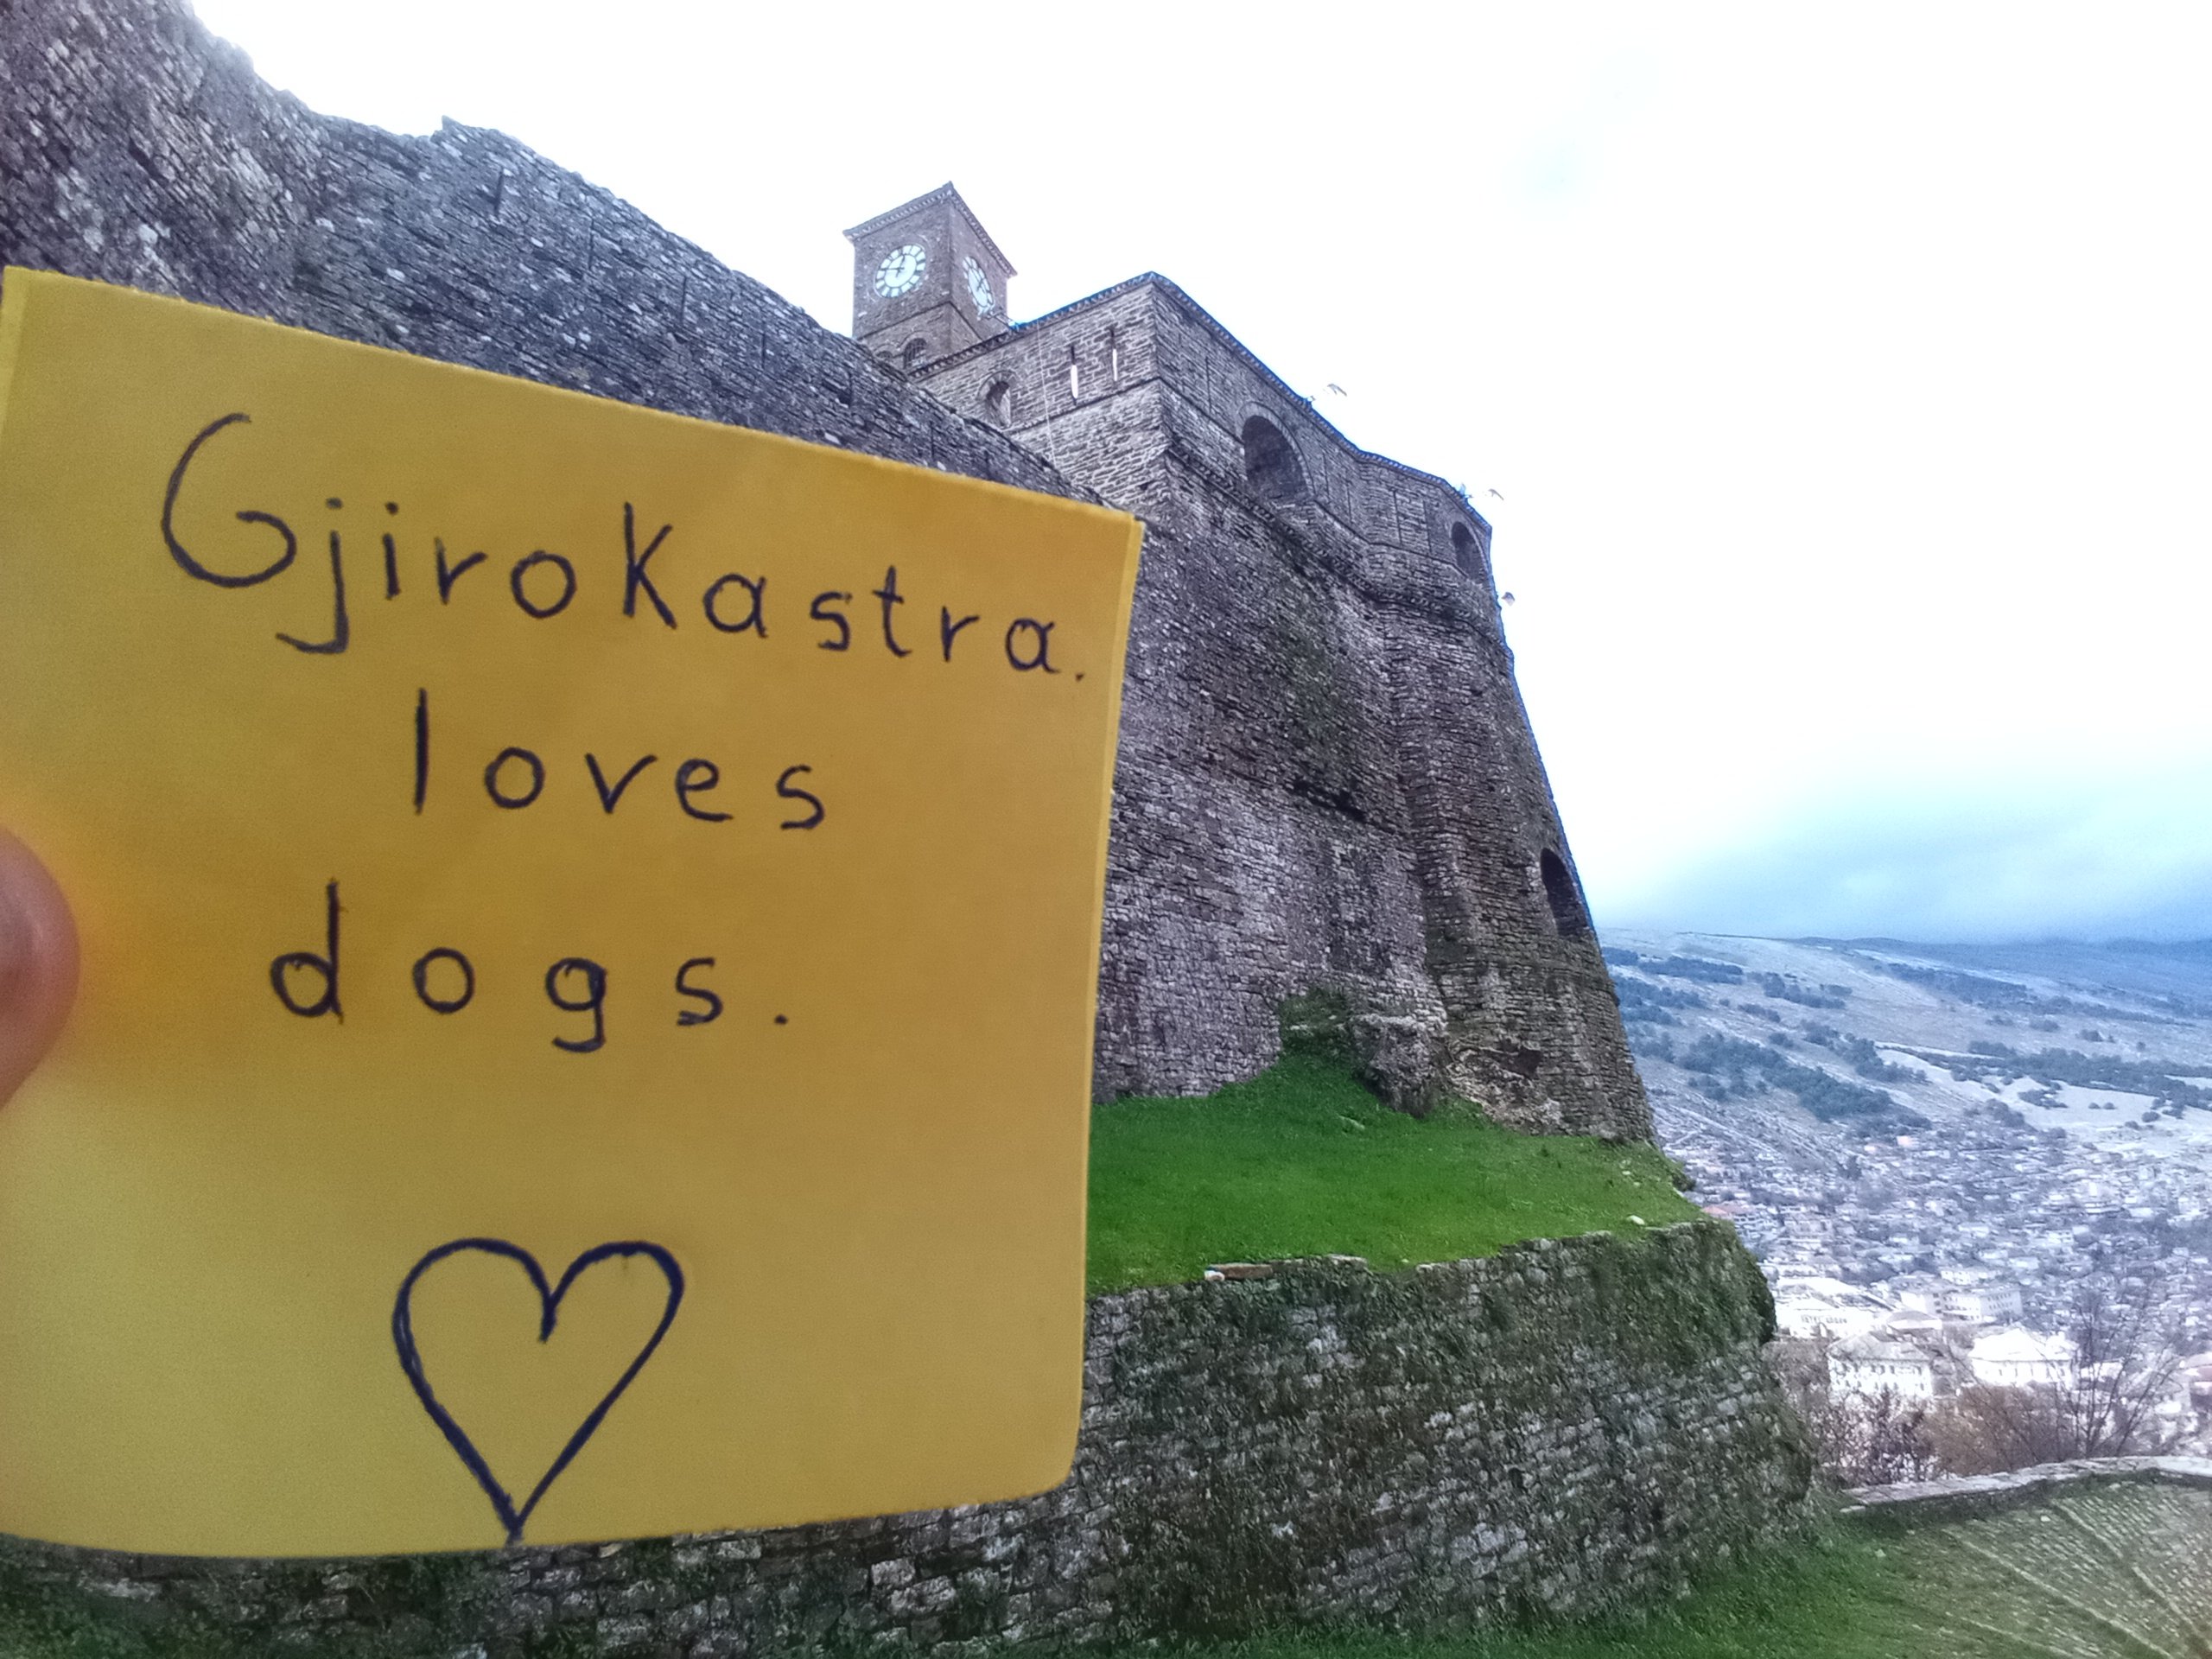 Gjirokastra.
loves
dogs.